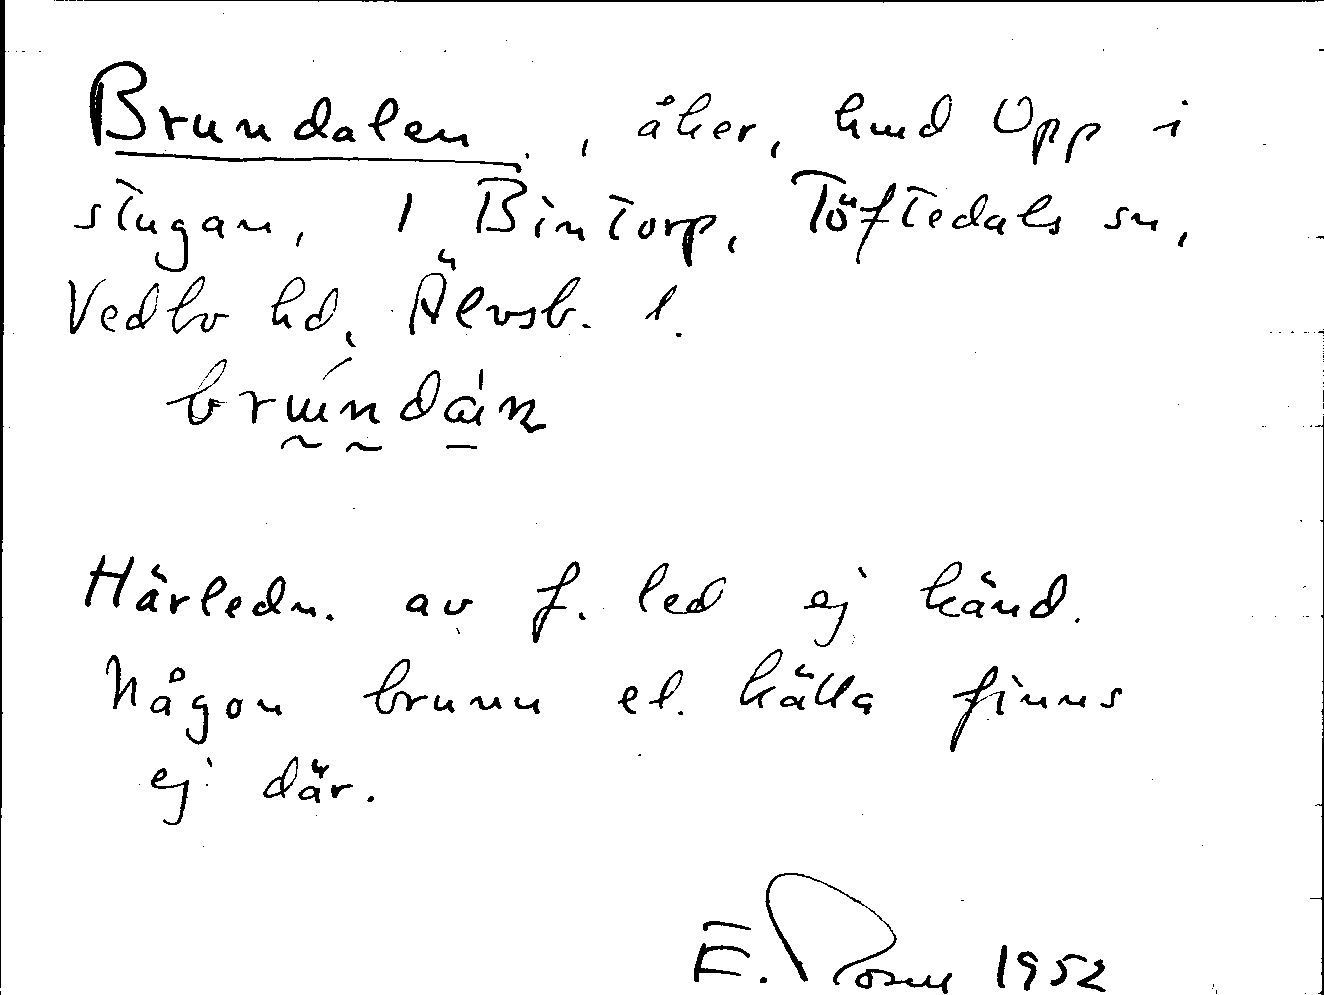 Brundalen, åker, hmd Upp i
stugan, 1 Bintorp, Töftedals sn,
Vedbo hd, Älvsb. l.
Härledn. av f. led ej känd.
Någon brunn el. källa finns
ej där.
E. 1952